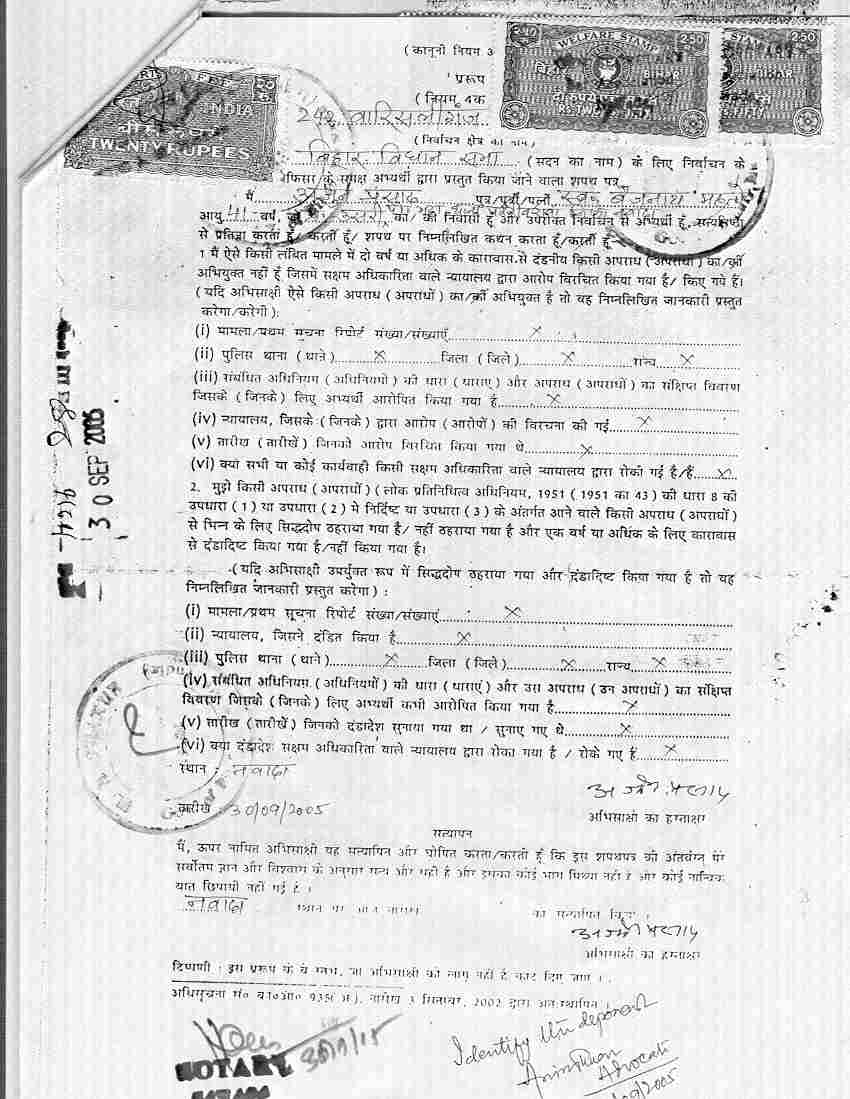 ( कानूनी नियम
' प्ररूप
( नियम 4क
WELFARE STAMP
2.50
2.50
BIHAR
BIHAR
INDIA
TWENTY RUPEES
वारिसलीगंज
(निर्वाचन क्षेत्र का नाम)
बिहार विधान सभा (सदन का नाम) के लिए निर्वाचन के
के समक्ष अभ्यर्थी द्वारा प्रस्तुत किया जाने वाला शपथ पत्र
मैं प्रसाद पुत्र/पुत्री/पत्नी
आयु 41 वर्ष, का/ की निवासी हूँ और उपरोक्त निर्वाचन से अभ्यर्थी हूँ, सत्यनिष्ठा
से प्रतिज्ञा करता हूँ/ करती हूँ/ शपथ पर निम्नलिखित कथन करता हूँ/करती हूँ:-
1 मैं ऐसे किसी लंबित मामले में दो वर्ष या अधिक के कारावास से दंडनीय किसी अपराध (अपराधों) का/की
अभियुक्त नहीं हूँ जिसमें सक्षम अधिकारिता वाले न्यायालय द्वारा आरोप विरचित किया गया है/ किए गये हैं।
( यदि अभिसाक्षी ऐसे किसी अपराध ( अपराधों ) का/की अभियुक्त है तो वह निम्नलिखित जानकारी प्रस्तुत
करेगा/करेगी ):
(i) मामला/प्रथम सूचना रिपोर्ट संख्या/संख्याएँ x
(ii) पुलिस थाना ( थाने ) x जिला ( जिले ) x राज्य x
(iii) संबंधित अधिनियम ( अधिनियमों ) की धारा ( धाराएं ) और अपराध ( अपराधों ) का संक्षिप्त विवरण
जिसके ( जिनके ) लिए अभ्यर्थी आरोपित किया गया है x
(iv) न्यायालय, जिसके ( जिनके ) द्वारा आरोप ( आरोपों ) की विरचना की गई x
(v) तारीख ( तारीखें ) जिनको आरोप विरचित किया गया थे x
(vi) क्या सभी या कोई कार्यवाही किसी सक्षम अधिकारिता वाले न्यायालय द्वारा रोकी गई है/है x
2. मुझे किसी अपराध ( अपराधों ) ( लोक प्रतिनिधित्व अधिनियम, 1951 ( 1951 का 43 ) की धारा 8 की
उपधारा ( 1 ) या उपधारा ( 2 ) में निर्दिष्ट या उपधारा ( 3 ) के अंतर्गत आने वाले किसी अपराध ( अपराधों )
से भिन्न के लिए सिद्धदोष ठहराया गया है/ नहीं ठहराया गया है और एक वर्ष या अधिक के लिए कारावास
से दंडादिष्ट किया गया है/नहीं किया गया है।
(यदि अभिसाक्षी उपर्युक्त रूप में सिद्धदोष ठहराया गया और दंडादिष्ट किया गया है तो यह
निम्नलिखित जानकारी प्रस्तुत करेगा ) :
(i) मामला/प्रथम सूचना रिपोर्ट संख्या/संख्याएं x
(ii) न्यायालय, जिसने दंडित किया है x
(iii) पुलिस थाना ( थाने ) x जिला ( जिले ) x राज्य x
(iv) संबंधित अधिनियम ( अधिनियमों ) की धारा ( धाराएं ) और उस अपराध ( उन अपराधों ) का संक्षिप्त
विवरण जिसके ( जिनके ) लिए अभ्यर्थी कभी आरोपित किया गया है x
(v) तारीख (तारीखें ) जिनको दंडादेश सुनाया गया था / सुनाए गए थे x
(vi) क्या दंडादेश सक्षम अधिकारिता वाले न्यायालय द्वारा रोका गया है / रोके गए हैं x
स्थान : नवादा
तारीख : 30/09/2005
अभिसाक्षी का हस्ताक्षर
सत्यापन
मैं, ऊपर नामित अभिसाक्षी यह सत्यापित और घोषित करता/करती हूँ कि इस शपथपत्र की अंतर्वस्तु मेरे
सर्वोत्तम ज्ञान और विश्वास के अनुसार सत्य और सही है और इसका कोई भाग मिथ्या नहीं है और कोई तात्विक
बात छिपायी नहीं गई है ।
नवादा स्थान पर आज तारीख को सत्यापित किया ।
अभिसाक्षी का हस्ताक्षर
टिप्पणी : इस प्ररूप के वे स्तंभ, जो अभिसाक्षी को लागू नहीं है काट दिए जाएं ।
अधिसूचना सं० का०आ० 935( अ ), तारीख 3 सितम्बर, 2002 द्वारा अंतःस्थापित ।
30 SEP 2005
NOTARY
Identify the deponent
Advocate